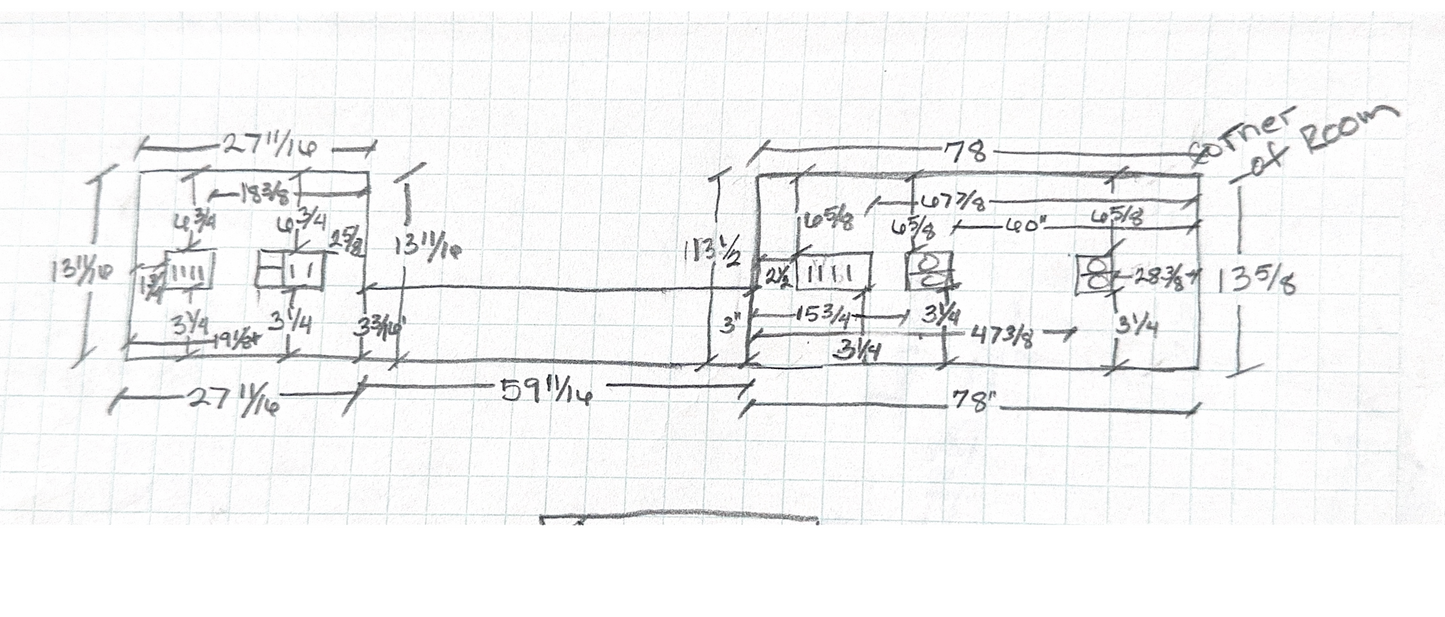 27 11/16
78
corner
of Room
18 3/8
67 7/8
6 3/4
6 3/4
6 5/8
6 5/8
40"
6 5/8
2 5/8
13 11/16
13 11/16
13 1/2
2 1/2
28 3/8
13 5/8
3 1/4
3 1/4
3 3/16"
3"
15 3/4
3 1/4
3 1/4
19 1/8
47 3/8
3 1/4
27 11/16
59 11/16
78"